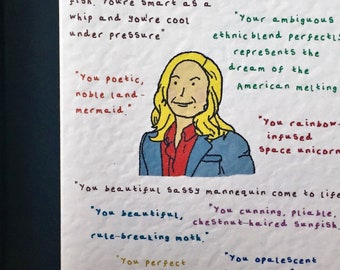 fish. You're smart as a
whip and you're cool
under pressure"
"Your ambiguous
ethnic blend perfectly
represents the
dream of the
American melting
"You poetic,
noble land-
mermaid."
"You rainbow-
infused
space unicorn
"You beautiful sassy mannequin come to life
"You beautiful,
rule-breaking moth."
"You cunning, pliable,
chestnut-haired sunfish
"You perfect
"You opalescent